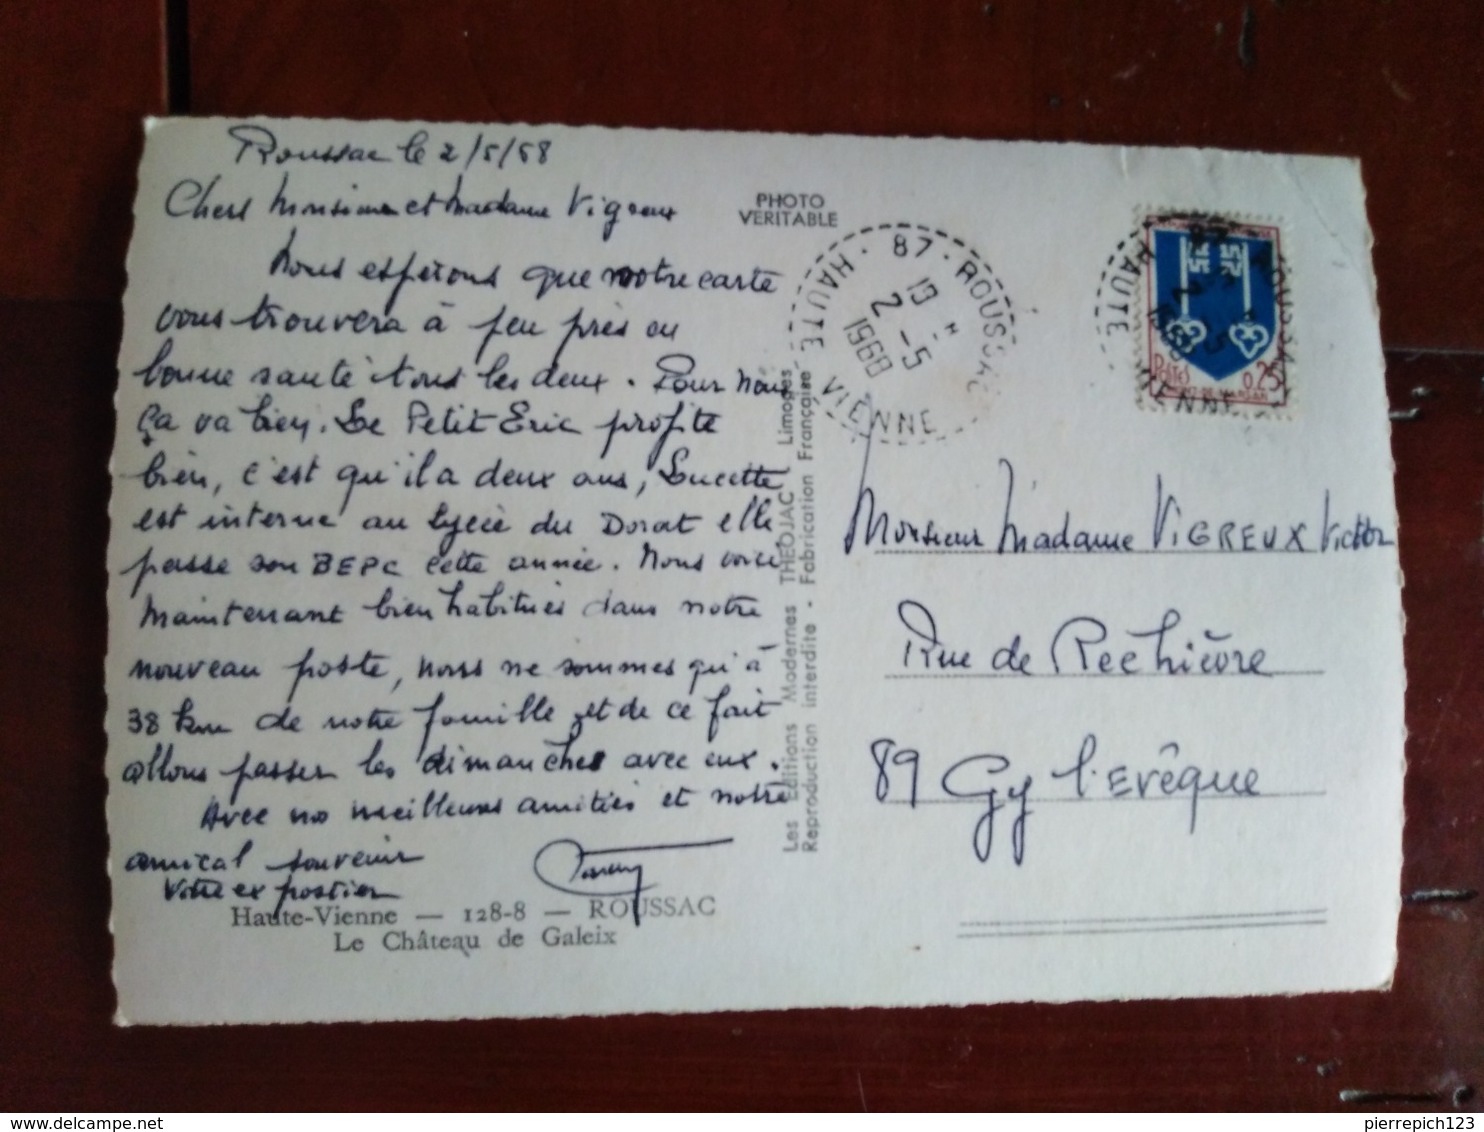 Roussac le 2/5/68
Chers Monsieur et Madame Vigreux
Nous espérons que notre carte
vous trouvera à peu près en
bonne santé tous les deux. Pour nous
ça va bien. Le Petit Eric profite
bien, c'est qu'il a deux ans, Lucette
est interne au lycée du Dorat elle
passe son BEPC cette année. Nous voici
maintenant bien habitués dans notre
nouveau poste, nous ne sommes qu'à
38 km de notre famille et de ce fait
allons passer les dimanches avec eux.
Avec nos meilleures amitiés et notre
amical souvenir
Votre ex postier
Haute-Vienne — 128-8 — ROUSSAC
Le Château de Galeix
PHOTO
VERITABLE
Les Editions Modernes THEOJAC Limoges
Reproduction interdite - Fabrication Française
87 - ROUSSAC
19 H
2 - 5
1968
HAUTE VIENNE
87 ROUSSAC
2 - 5
1968
HAUTE VIENNE
0.25
MONT-DE-MARSAN
Monsieur Madame VIGREUX Victor
Rue de Rechièvre
89 Gy l'Evêque
pierrepich123